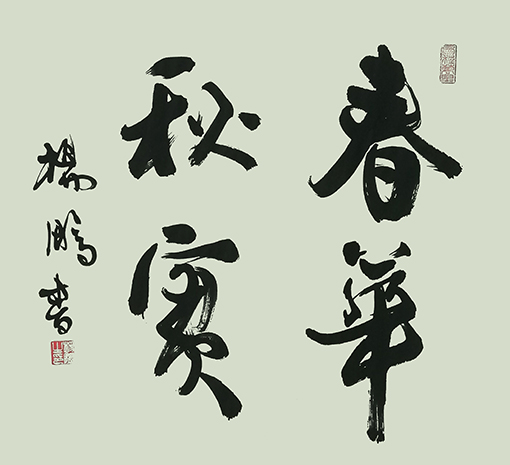 春華
秋實
楊鵬書